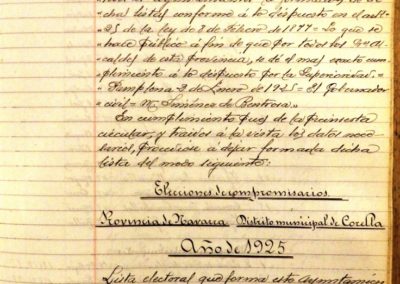 chas listas conforme á lo dispuesto en el artº
25 de la ley de 8 de Febrero de 1877= Lo que se
hace público á fin de que por todos los Srs Al-
caldes de esta provincia, se dé el mas exacto cum-
plimiento á lo dispuesto por la Superioridad.=
Pamplona 2 de Enero de 1925= El Gobernador
civil= M. Jiménez de Bentrosa=
En cumplimiento pues de la preinserta
circular, y traidos á la vista los datos nece-
sarios, procedióse á dejar formada dicha
lista del modo siguiente:
Elecciones de compromisarios.
Provincia de Navarra Distrito municipal de Corella
Año de 1925
Lista electoral que forma este Ayuntamien